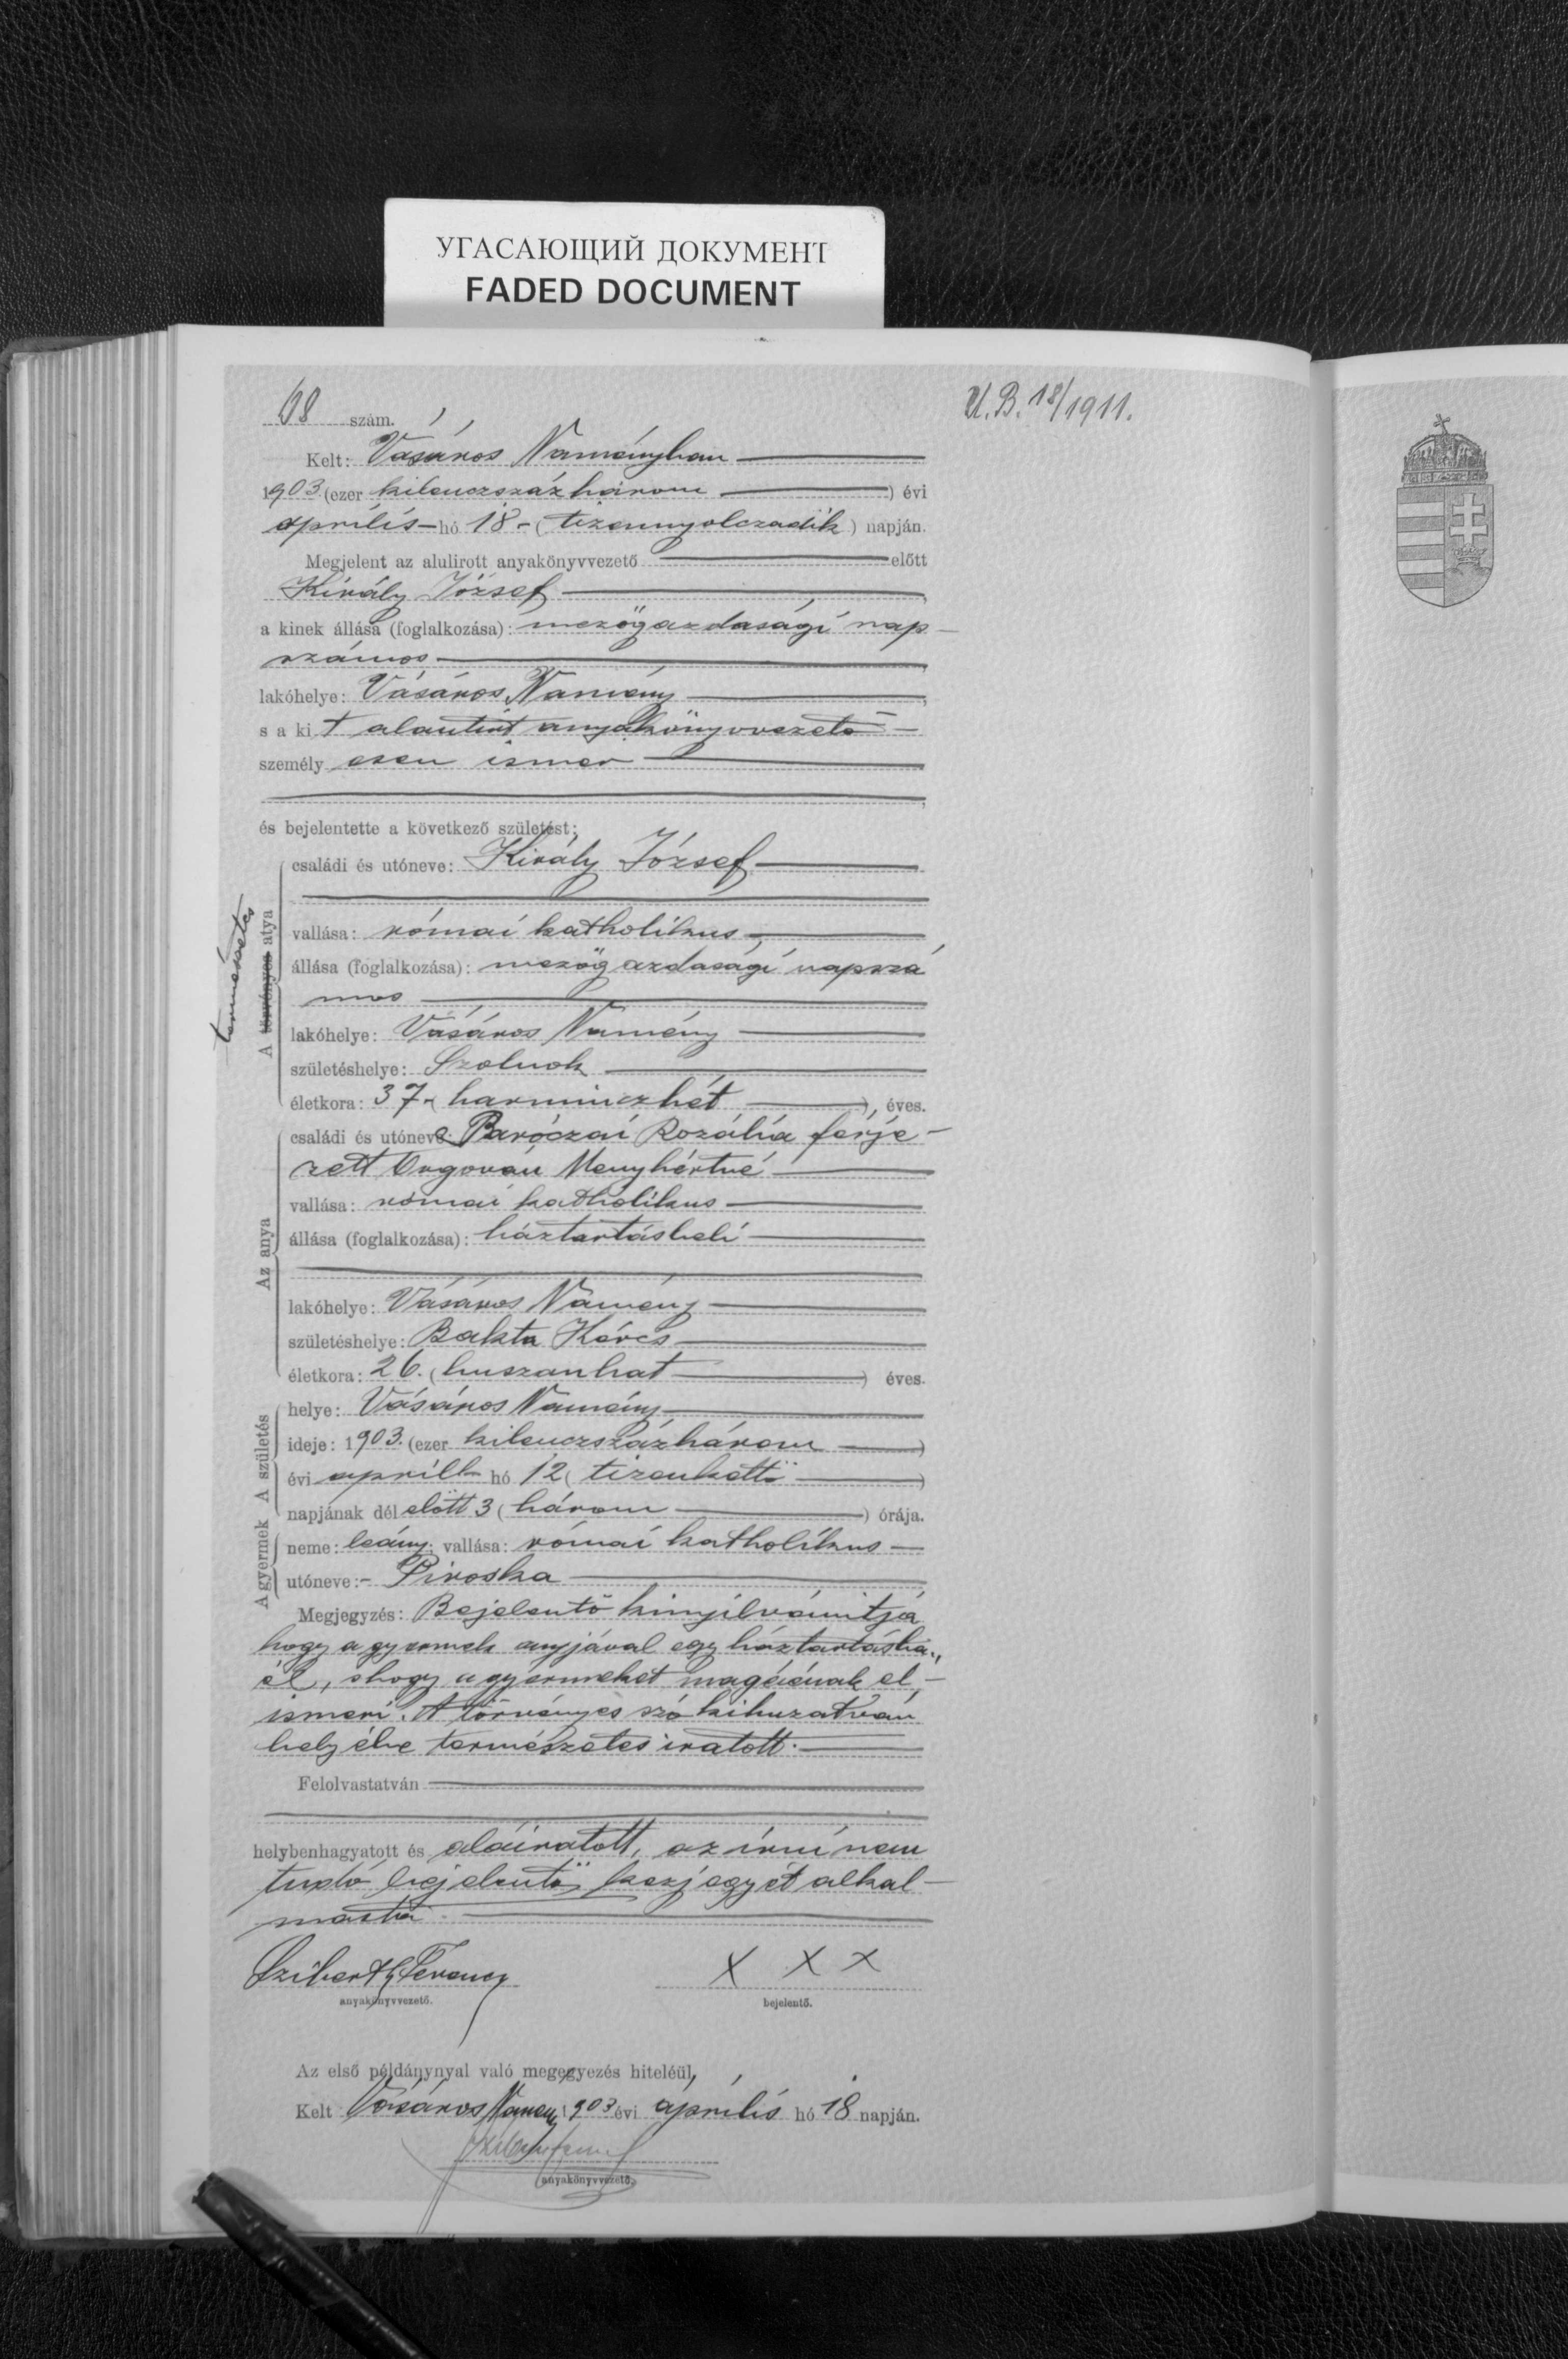 УГАСАЮЩИЙ ДОКУМЕНТ
FADED DOCUMENT
68 szám.
U.B. 18/1911.
Kelt: Vásáros Naményban
1903. (ezer kilenczszázhárom ) évi
április hó 18. (tizennyolczadik) napján.
Megjelent az alulirott anyakönyvvezető előtt
Király József
a kinek állása (foglalkozása): mezőgazdasági nap-
számos
lakóhelye: Vásáros Namény
s a kit alantirt anyakönyvvezető
személyesen ismer
és bejelentette a következő születést:
A törvényes atya
természetes
családi és utóneve: Király József
vallása: római katholikus
állása (foglalkozása): mezőgazdasági napszá
mos
lakóhelye: Vásáros Namény
születéshelye: Szolnok
életkora: 37. (harminczhét ), éves.
Az anya
családi és utóneve: Baróczai Rozália férje-
zett Orgován Menyhértné
vallása: római katholikus
állása (foglalkozása): háztartásbeli
lakóhelye: Vásáros Namény
születéshelye: Bakta
életkora: 26. (huszonhat ) éves.
A születés
helye: Vásáros Namény
ideje: 1903. (ezer kilenczszázhárom )
évi april hó 12 (tizenkettő )
napjának dél előtt 3 (három ) órája.
A gyermek
neme: leány. vallása: római katholikus
utóneve: Piroska
Megjegyzés: Bejelentő kinyilvánitja
hogy a gyermek anyjával egy háztartásba
él, s hogy a gyermeket magáénak el-
ismeri. A törvényes szó kihuzatván
helyébe természetes iratott.
Felolvastatván
helybenhagyatott és aláiratott, az irni nem
tudó bejelentő kézjegyét alkal-
mazta
Ferencz
X X X
anyakönyvvezető.
bejelentő.
Az első példánynyal való megegyezés hiteléül,
Kelt Vásáros Namény 1903 évi április hó 18 napján.
anyakönyvvezető.